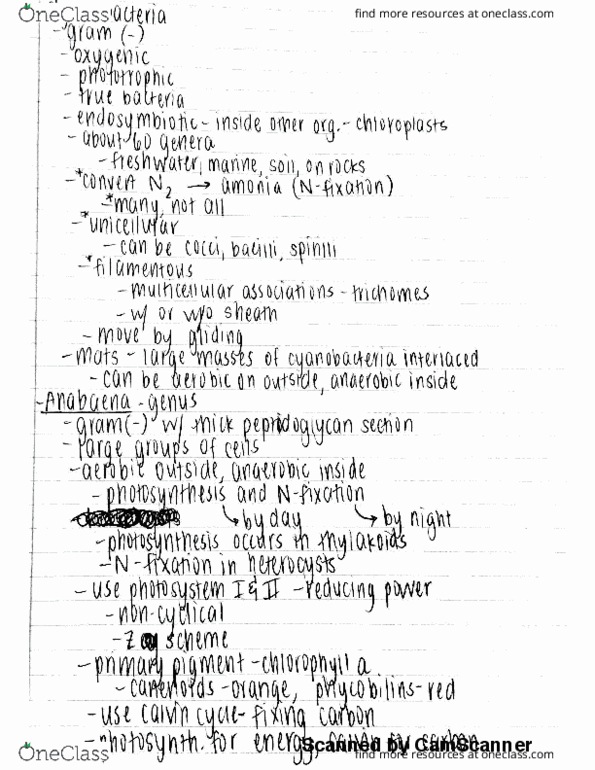 OneClass
find more resources at oneclass.com
acteria
- gram (-)
- oxygenic
- phototrophic
- true bacteria
- endosymbiotic - inside other org. - chloroplasts
- about 60 genera
- freshwater, marine, soil, on rocks
- *convert N2 → amonia (N-fixation)
- *many, not all
- *unicellular
- can be cocci, bacilli, spirilli
- *filamentous
- multicellular associations - trichomes
- w/ or w/o sheath
- move by gliding
- mats - large masses of cyanobacteria interlaced
- can be aerobic on outside, anaerobic inside
- Anabaena - genus
- gram(-) w/ thick peptidoglycan section
- large groups of cells
- aerobic outside, anaerobic inside
- photosynthesis and N-fixation
↳ by day ↳ by night
- photosynthesis occurs in thylakoids
- N-fixation in heterocysts
- use photosystem I & II - reducing power
- non-cyclical
- Z scheme
- primary pigment - chlorophyll a
- carenoids - orange, phycobilins - red
- use calvin cycle - fixing carbon
- photosynth. for energy, for carbon
Scanned by CamScanner
OneClass
find more resources at oneclass.com